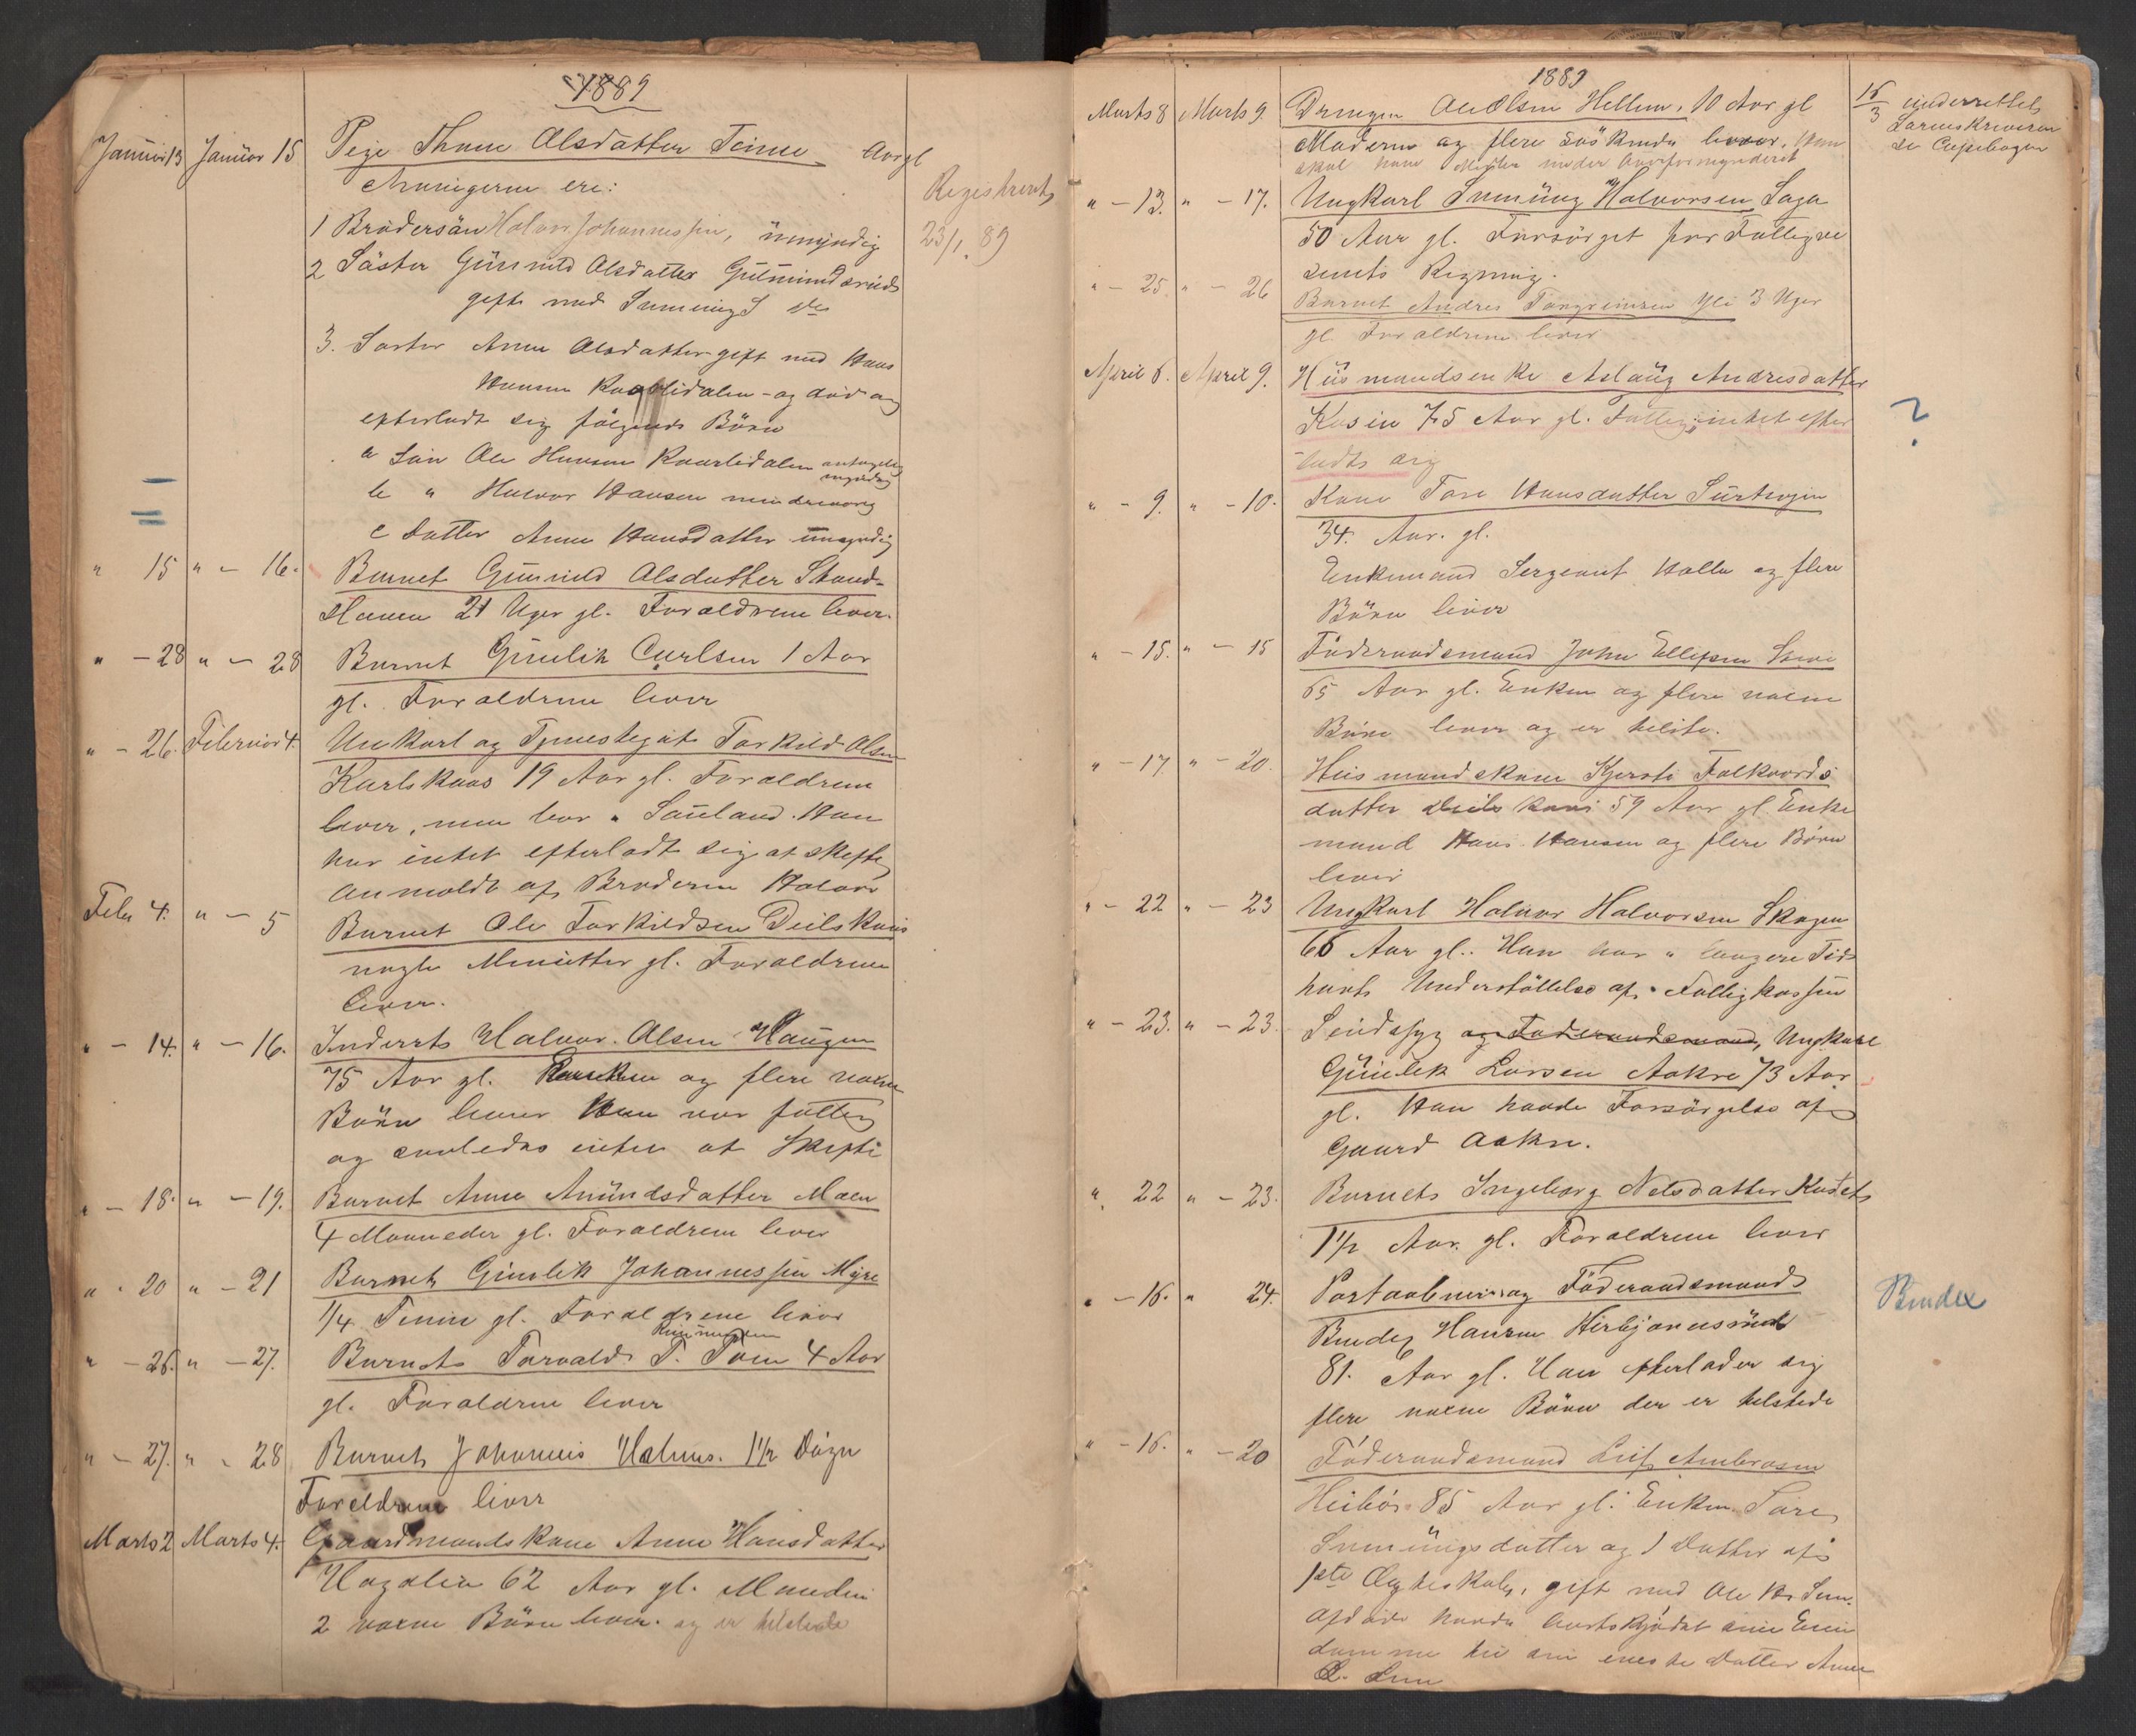 1889
Januar 13 Januar 15 Pege Thone Olsdatter Teine Aar gl
Arvingerne ere:
Registrert
23/1 89
1 Brodersön Halvor Johannessen, umyndig
2 Söster Gunnild Olsdatter Gulmundsrud
gift med Sunnung S
3. Söster Anne Olsdatter gift med Hans
Hansen Kaaslidalen - og död og
efterladt sig fölgende Börn
a Sön Ole Hansen Kaaslidalen antagelig
myndig
b " Halvor Hansen mindreaarig
c Datter Anne Hansdatter umyndig
" 15 " - 16. Barnet Gunnild Olsdatter Strand-
21 Uger gl. Foraldrene lever.
" - 28 " - 28 Barnet Gunlik Carlsen 1 Aar
gl. Foraldrene lever
" - 26. Februar 4. Unkarl og Tjenestegut Torkild Olsen
Karlskaas 19 Aar gl. Foraldrene
lever, men bor i Sauland. Han
har intet efterladt sig at skifte
anmeldt af Broderen Halvor
Febr 4. " - 5 Barnet Ole Torkildsen Deilskaas
nogle Minutter gl. Foraldrene
lever.
" - 14. " - 16. Inderst Halvor Olsen Haugen
75 Aar gl. Enken og flere voxne
Börn lever Han var fattig
og saaledes intet at Skifte
" - 18. " - 19. Barnet Anne Amundsdatter Moen
4 Maaneder gl. Foraldrene lever
" - 20 " - 21 Barnet Gunlik Johannessen Myre
1/4 Time gl. Foraldrene lever
" - 26. " - 27. Barnet Torvald T. Toen 4 Aar
gl. Foraldrene lever
" - 27. " - 28 Barnet Johannes 1 1/2 Dögn
Foraldrene lever
Marts 2 Marts 4. Gaardmandskone Anne Hansdatter
Hagalia 62 Aar gl. Manden
2 voxne Börn lever. og er tilstede
1889
Marts 8 Marts 9. Drengen Ole Olsen Hellem, 10 Aar gl
Moderen og flere Söskende lever. Han
skal have Midler under Overformynderiet
15/3 underrettet
Sorenskriveren
" - 13. " - 17. Ungkarl Sunnung Halvorsen Saga
50 Aar gl. Forsörget for Fattigvæ
senets Regning.
" - 25. " - 26 Barnet Andres Torgrimsen Yli 3 Uger
gl. Foraldrene lever
April 6. April 9. Husmandsenke Aslaug Andresdatter
Kasin 75 Aar gl. Fattig, intet efter
ladt sig
?
" - 9. " - 10. Kone Tore Hansdatter Surtvojen
34. Aar. gl.
Enkemand Sergeant Halla og flere
Börn lever
" - 15. " - 15 Föderaadsmand John Ellefsen
65 Aar gl. Enken og flere voxne
Börn lever og er tilste.
" - 17. " - 20. Husmandskone Kjersti Folkvords
datter Deilskaas 59 Aar gl. Enke
mand Hans Hansen og flere Börn
lever
" - 22 " - 23 Ungkarl Halvor Halvorsen Skogen
66 Aar gl.. Han har i længere Tid
havt Understöttelse af Fattigkassen
" - 23. " - 23. Sindssyg og Föderaadsmand, Ungkarl
Gunlek Larsen Aakre 73 Aar
gl. Han havde Forsörgelse af
Gaard Aakre.
" 22 " - 23. Barnet Ingeborg Nelsdatter
1 1/2 Aar. gl. Foraldrene lever
" - 16. " 24. Postaabner og Föderaadsmand
Bendex Hansen Herbjornsrud
81. Aar gl. Han efterlader sig
flere voxne Börn der er tilstede
Bendex
" - 16. " - 20 Föderaadsmand Leif Ambrosen
Heibö 85 Aar gl. Enken Tore
Sunnungsdatter og 1 Datter af
1ste Ægteskab, gift med Ole
Afdöde havde bortskjödet sine Eien
domme til sin eneste Datter Anne